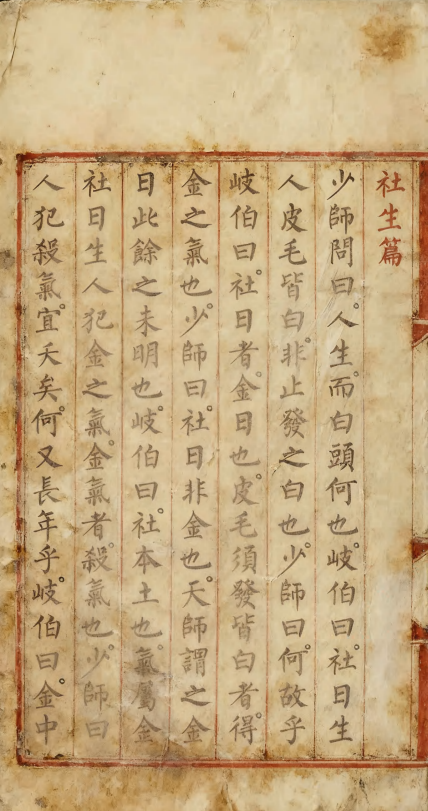 社生篇
少師問曰。人生而白頭何也。岐伯曰。社日生
人皮毛皆白。非止發之白也。少師曰。何故乎
岐伯曰。社日者。金日也。皮毛須發皆白者。得
金之氣也。少師曰。社日非金也。天師謂之金
日此餘之未明也。岐伯曰。社本土也。氣屬金
社日生人犯金之氣。金氣者。殺氣也。少師曰
人犯殺氣。宜夭矣。何又長年乎。岐伯曰。金中